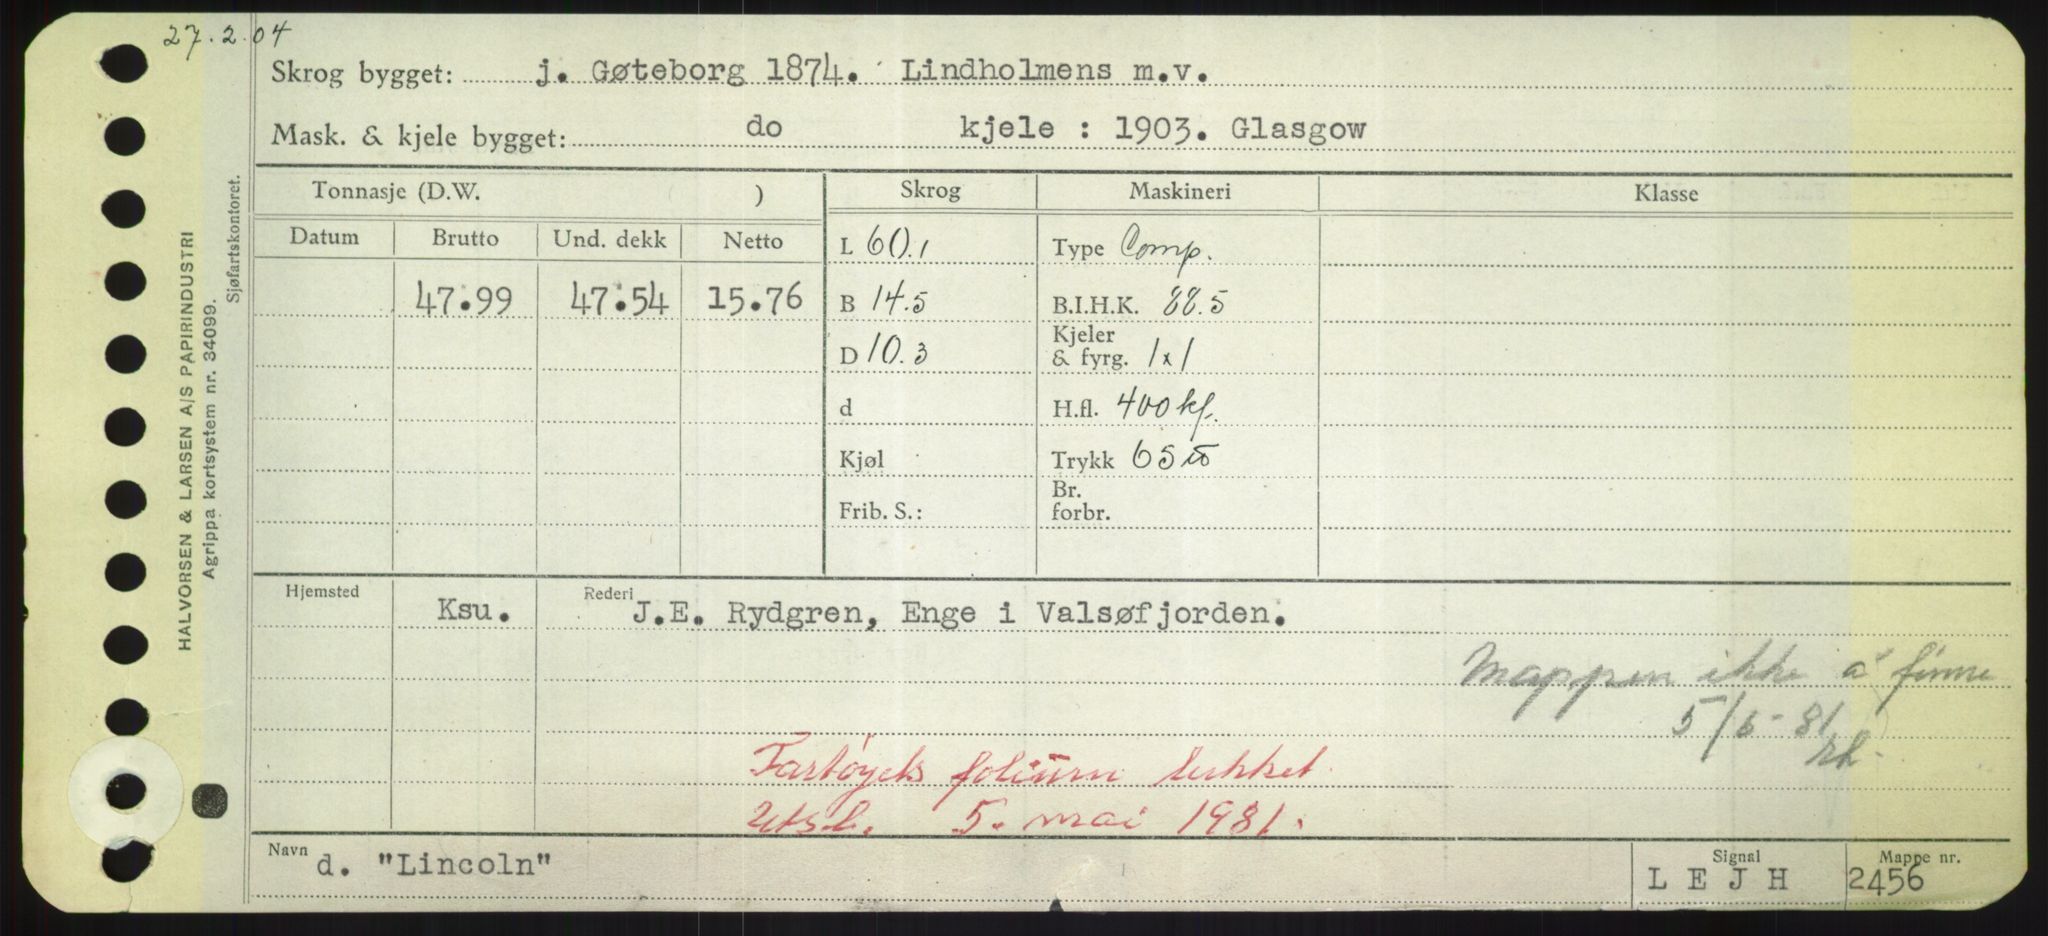 27.2.04
Skrog bygget: j. Gøteborg 1874. Lindholmens m.v.
Mask. & kjele bygget: do kjele : 1903. Glasgow
Tonnasje (D.W. ) Skrog Maskineri Klasse
Datum Brutto Und. dekk Netto
47.99 47.54 15.76
L 60.1
B 14.5
D 10.3
d
Kjøl
Frib. S.:
Type Comp.
B.I.H.K. 88.5
Kjeler
& fyrg. 1x1
H.fl. 400 kf.
Trykk 65
Br.
forbr.
Hjemsted Ksu. Rederi J.E. Rydgren, Enge i Valsøfjorden.
Mappen ikke å finne
5/5-81
Fartøyets folium lukket
5. mai 1981.
Navn d. "Lincoln"
Signal L E J H
Mappe nr. 2456
HALVORSEN & LARSEN A/S PAPIRINDUSTRI
Agrippa kortsystem nr. 34099.
Sjøfartskontoret.